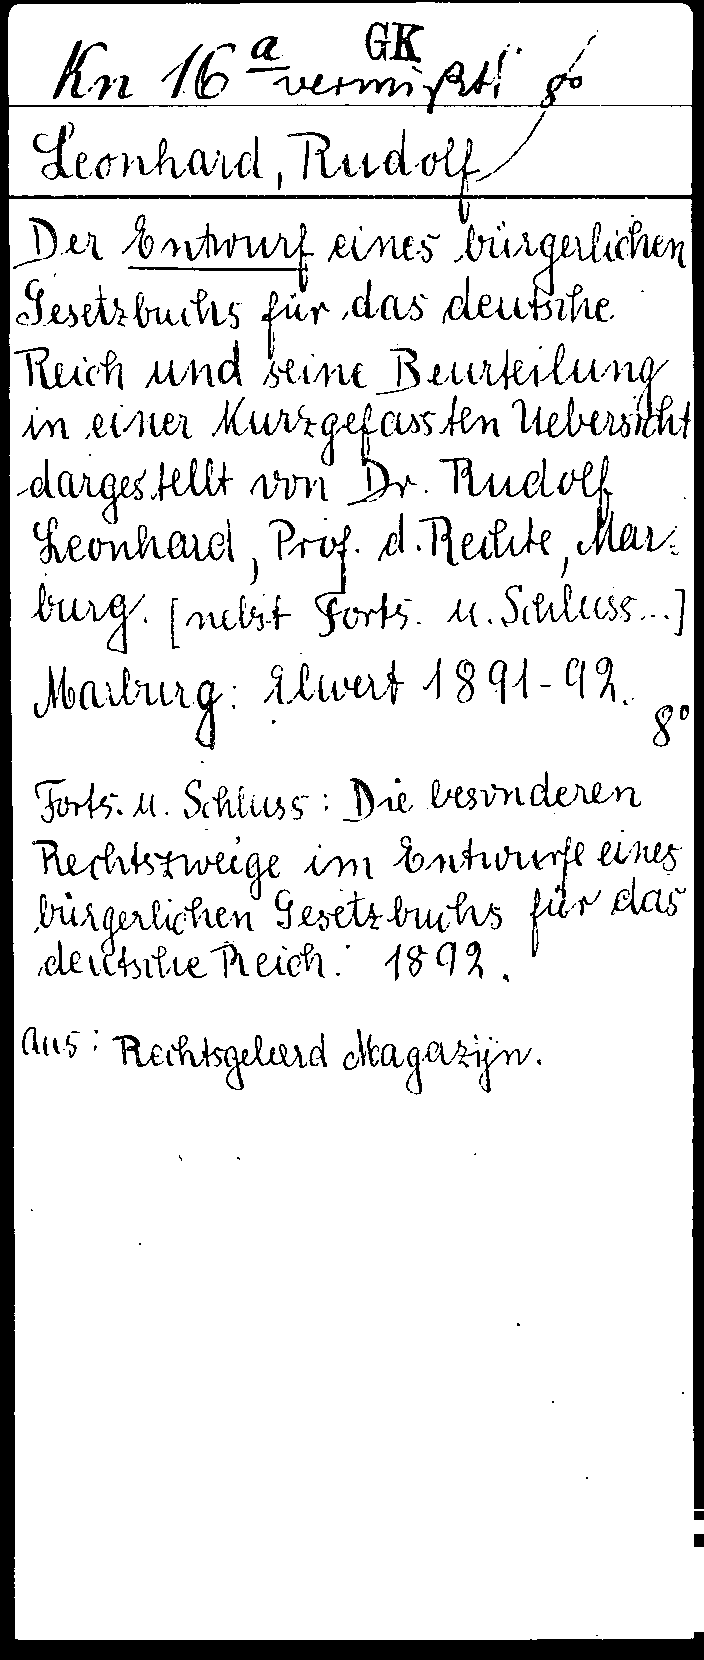 GK
Kn 16 a vermißt! 8°
Leonhard, Rudolf
Der Entwurf eines bürgerlichen
Gesetzbuchs für das deutsche
Reich und seine Beurteilung
in einer Kurzgefassten Uebersicht
dargestellt von Dr. Rudolf
Leonhard, Prof. d. Rechte, Mar-
burg. [nebst Forts. u. Schluss...]
Marburg: Elwert 1891-92.
8°
Forts. u. Schluss: Die besonderen
Rechtszweige im Entwurfe eines
bürgerlichen Gesetzbuchs für das
deutsche Reich. 1892.
Aus: Rechtsgeleerd Magazijn.